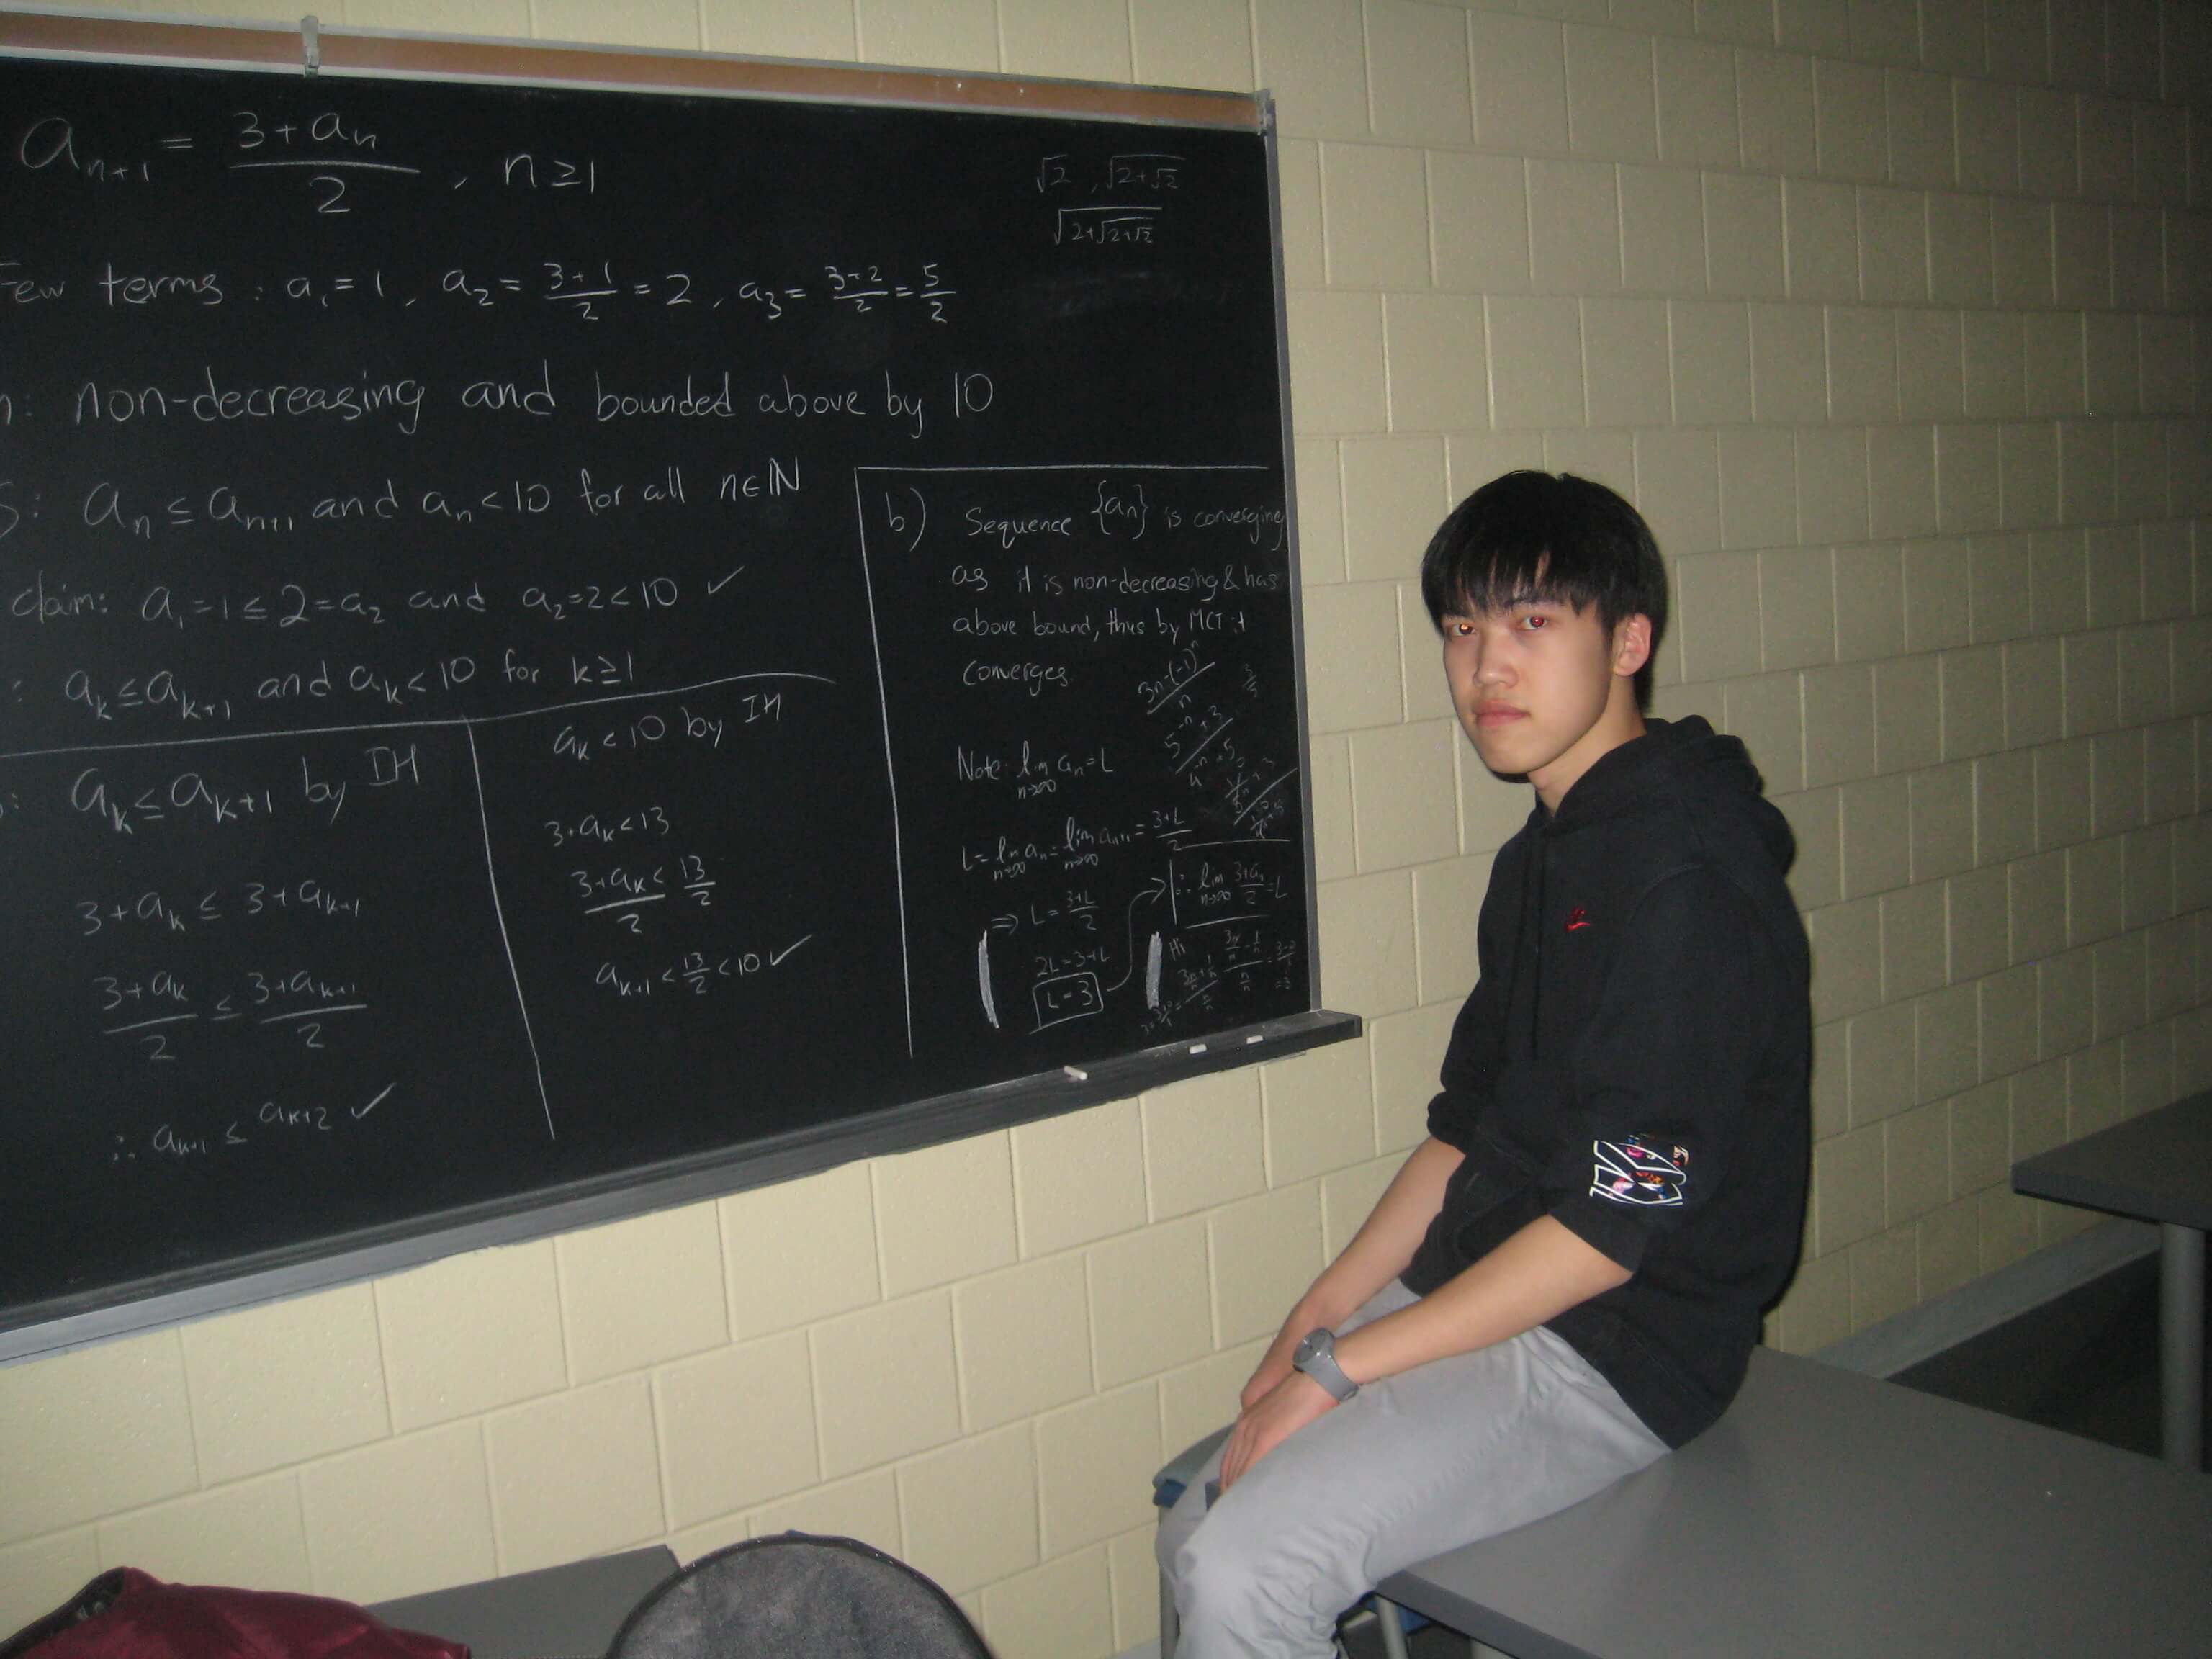 a_{n+1} = \frac{3+a_n}{2}, n ≥ 1
√2, √(2+√2)
√(2+√(2+√2))
Few terms: a_1 = 1, a_2 = \frac{3+1}{2} = 2, a_3 = \frac{3+2}{2} = \frac{5}{2}
: non-decreasing and bounded above by 10
: a_n ≤ a_{n+1} and a_n < 10 for all n ∈ ℕ
claim: a_1 = 1 ≤ 2 = a_2 and a_2 = 2 < 10 ✓
: a_k ≤ a_{k+1} and a_k < 10 for k ≥ 1
: a_k ≤ a_{k+1} by IH
3 + a_k ≤ 3 + a_{k+1}
\frac{3+a_k}{2} ≤ \frac{3+a_{k+1}}{2}
∴ a_{k+1} ≤ a_{k+2} ✓
a_k < 10 by IH
3 + a_k < 13
\frac{3+a_k}{2} < \frac{13}{2}
a_{k+1} < \frac{13}{2} < 10 ✓
b) Sequence {a_n} is converging
as it is non-decreasing & has
above bound, thus by MCT it
converges.
\frac{3n-(-1)^n}{n}
Note: lim_{n→∞} a_n = L
L = lim_{n→∞} a_n = lim_{n→∞} a_{n+1} = \frac{3+L}{2}
⇒ L = \frac{3+L}{2}
2L = 3+L
L = 3
∴ lim_{n→∞} \frac{3+a_n}{2} = L
Hi